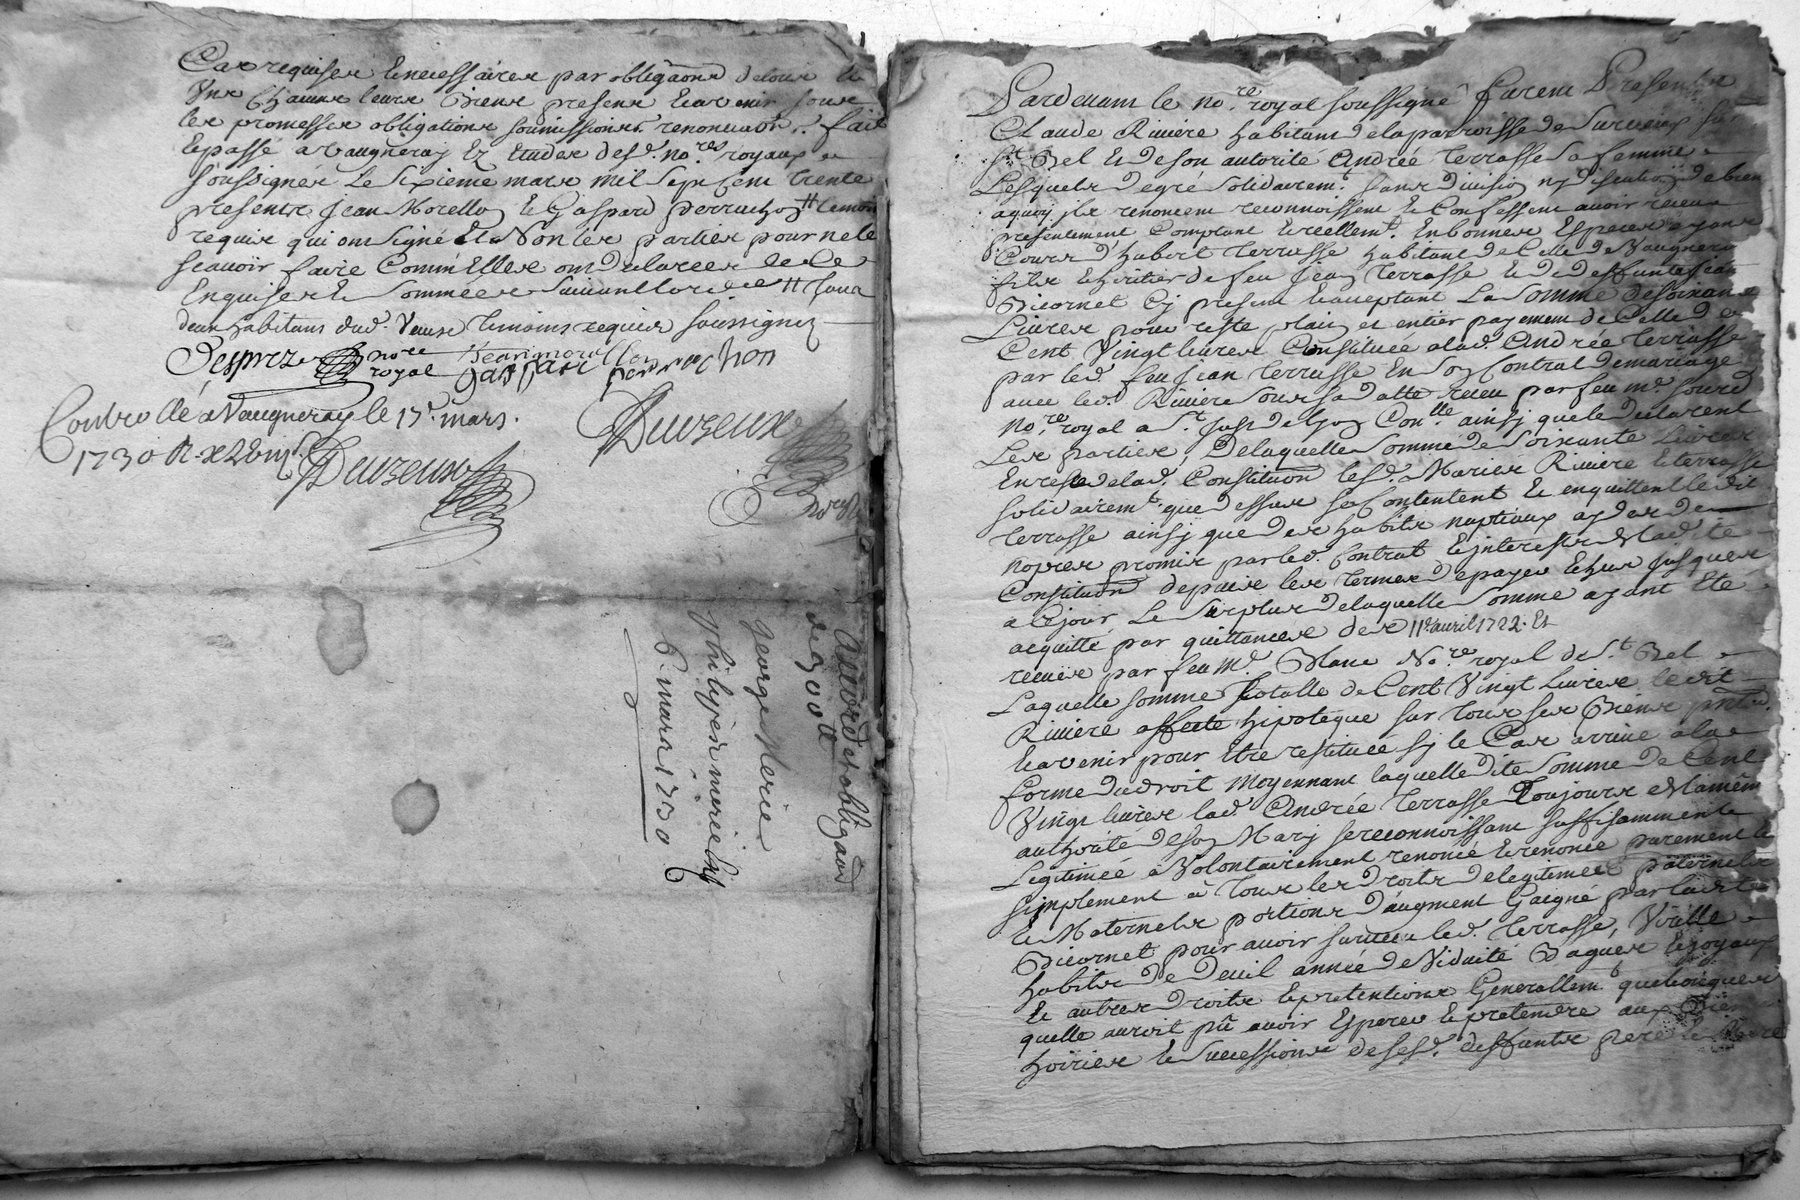 Cas requises & necessaires par obligaons de tous &
Uns Chacuns leurs Biens presens & avenir sous
les promesses obligations soumissions renonciaons. fait
& passé a Vaugneray Ez Etudes desd. no.res royaux
soussignés Le Sixieme mars mil sept Cent trente
presents Jean Morellon & Gaspard perrachon #
requis qui ont signé & Non les parties pour ne le
scavoir faire Comm'Elles ont declarées de Ce
Enquises & Sommées suivant l'ord.ce # tous
deux habitans dud. Temoins requis soussignez
Desprez no.re royal Jean morellon gaspard perrachon
Controllé a Vaugneray le 17.e mars
1730 R.
Duvzeux
Duvzeux
de 300 ₶
george Merie
philijen merieley
6. mars 1730
Pardevant le no.re royal soussigné furent Presents
Claude Riviere habitant de la parroisse de
S.t Bel & de son autorité Andrée Terrasse sa femme
Lesquels de gré solidairem.t sans division ny discution de bien
aquoy ils renoncent reconnoissent & Confessent avoir receu
presentement Comptant & reellem.t En bonnes Especes ayans
Cours d'hubert Terrasse habitant de Celle de Vaugneray
fils & heritier de feu Jean Terrasse & de deffunte
Bicornet Cy present & acceptant La somme de soixante
Livres pour reste plain et entier payement de Celle de
Cent Vingt livres Constituée a lad. Andrée Terrasse
par led. feu Jean Terrasse En son Contrat de mariage
avec led. Riviere receu par feu m.e
no.re royal a S.t Just de Lyon ainsy que le declarent
Les parties, De laquelle Somme de Soixante Livres
En reste de lad. Constituon lesd. Mariés Riviere & terrasse
solidairem.t que dessus se Contentent & en quittent ledit
Terrasse ainsy que des habits nuptiaux
nopces promis par led. Contrat & interests de lad.te
Constituon depuis les termes de payer & chus jusques
a Ce jour Le Surplus de laquelle somme ayant Eté
acquitté par quittances des 11.e avril 1722. Et
receües par feu m.e Blanc No.re royal de S.t Bel
Laquelle somme totalle de Cent Vingt Livres ledit
Riviere affecte hipoteque sur tous ses Biens pnts
& avenir pour Etre restituée sy le Cas arrive a la
forme du droit Moyennant laquelle dite somme de Cent
Vingt livres lad. Andrée Terrasse Toujours
authorité de son Mary se reconnoissant suffisamment
Legitimée a Volontairement renoncé & renonce purement &
simplement à tous les droits de legitimes paternels
& Maternels portions d'augment Gaigné par ladite
Bicornet pour avoir survecu led. Terrasse,
habits de deuil année de Viduité Bagues & joyaux
& autres droits & pretentions Generallem.t quelconques
quelle auroit pû avoir Esperer & pretendre aux
hoiries & successions de sesd. deffunts pere & mere